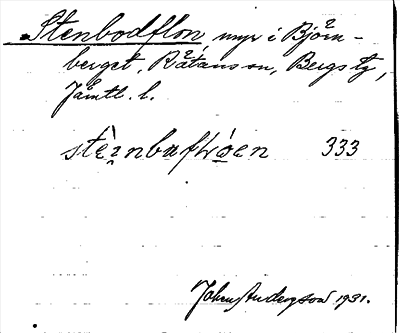 Stenbodflon, myr i Björn-
berget, Rätans sn, Bergs tg,
Jämtl. l.
333
Johan Anderson 1931.